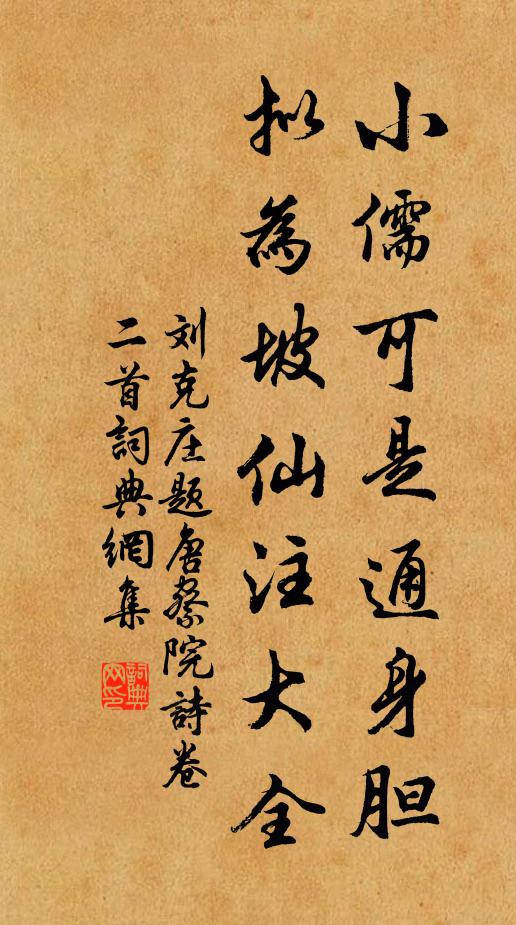 小儒可是通身胆
拟為坡仙注大全
刘克庄题唐察院詩卷
二首詞典網集
詞典网印